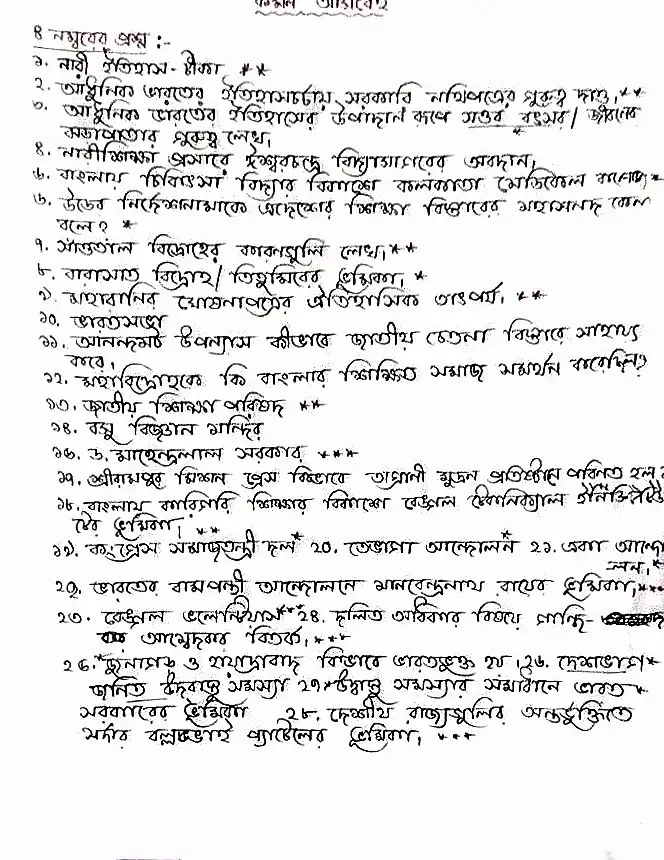 কমন আসবেই
৪ নম্বরের প্রশ্ন :-
১. নারী ইতিহাস - টীকা **
২. আধুনিক ভারতের ইতিহাসচর্চায় সরকারি নথিপত্রের গুরুত্ব দাও, **
৩. আধুনিক ভারতের ইতিহাসের উপাদান রূপে সত্তর বৎসর / জীবনের
ঝরাপাতার গুরুত্ব লেখ,
৪. নারীশিক্ষা প্রসারে ঈশ্বরচন্দ্র বিদ্যাসাগরের অবদান,
৫. বাংলায় চিকিৎসা বিদ্যার বিকাশে কলকাতা মেডিকেল কলেজ, *
৬. উডের নির্দেশনামাকে এদেশের শিক্ষা বিস্তারের মহাসনদ কেন
বলে? *
৭. সাঁওতাল বিদ্রোহের কারণগুলি লেখ, **
৮. বারাসাত বিদ্রোহ / তিতুমিরের ভূমিকা, *
৯. মহারানির ঘোষনাপত্রের ঐতিহাসিক তাৎপর্য, **
১০. ভারতসভা
১১. আনন্দমঠ উপন্যাস কীভাবে জাতীয় চেতনা বিস্তারে সাহায্য
করে,
১২. মহাবিদ্রোহকে কি বাংলার শিক্ষিত সমাজ সমর্থন করেছিল?
১৩. জাতীয় শিক্ষা পরিষদ **
১৪. বসু বিজ্ঞান মন্দির
১৬. ড. মহেন্দ্রলাল সরকার ***
১৭. শ্রীরামপুর মিশন প্রেস কিভাবে অগ্রণী মুদ্রন প্রতিষ্ঠানে পরিনত হল
১৮. বাংলায় কারিগরি শিক্ষার বিকাশে বেঙ্গল টেকনিক্যাল ইনস্টিটিউ
টের ভূমিকা, **
১৯. কংগ্রেস সমাজতন্ত্রী দল* ২০. তেভাগা আন্দোলন* ২১. একা আন্দো
লন, *
২২. ভারতের বামপন্থী আন্দোলনে মানবেন্দ্রনাথ রায়ের ভূমিকা, ***
২৩. বেঙ্গল ভলেন্টিয়ার্স** ২৪. দলিত অধিকার বিষয়ে গান্ধি -
আম্বেদকর বিতর্ক, ***
২৫. *জুনাগড় ও হায়দ্রাবাদ কিভাবে ভারতভুক্ত হয়, ২৬. দেশভাগ*
জনিত উদবাস্তু সমস্যা ২৭* উদ্বাস্তু সমস্যার সমাধানে ভারত *
সরকারের ভূমিকা ২৮. দেশীয় রাজ্যগুলির অন্তর্ভুক্তিতে
সর্দার বল্লভভাই প্যাটেলের ভূমিকা, ***